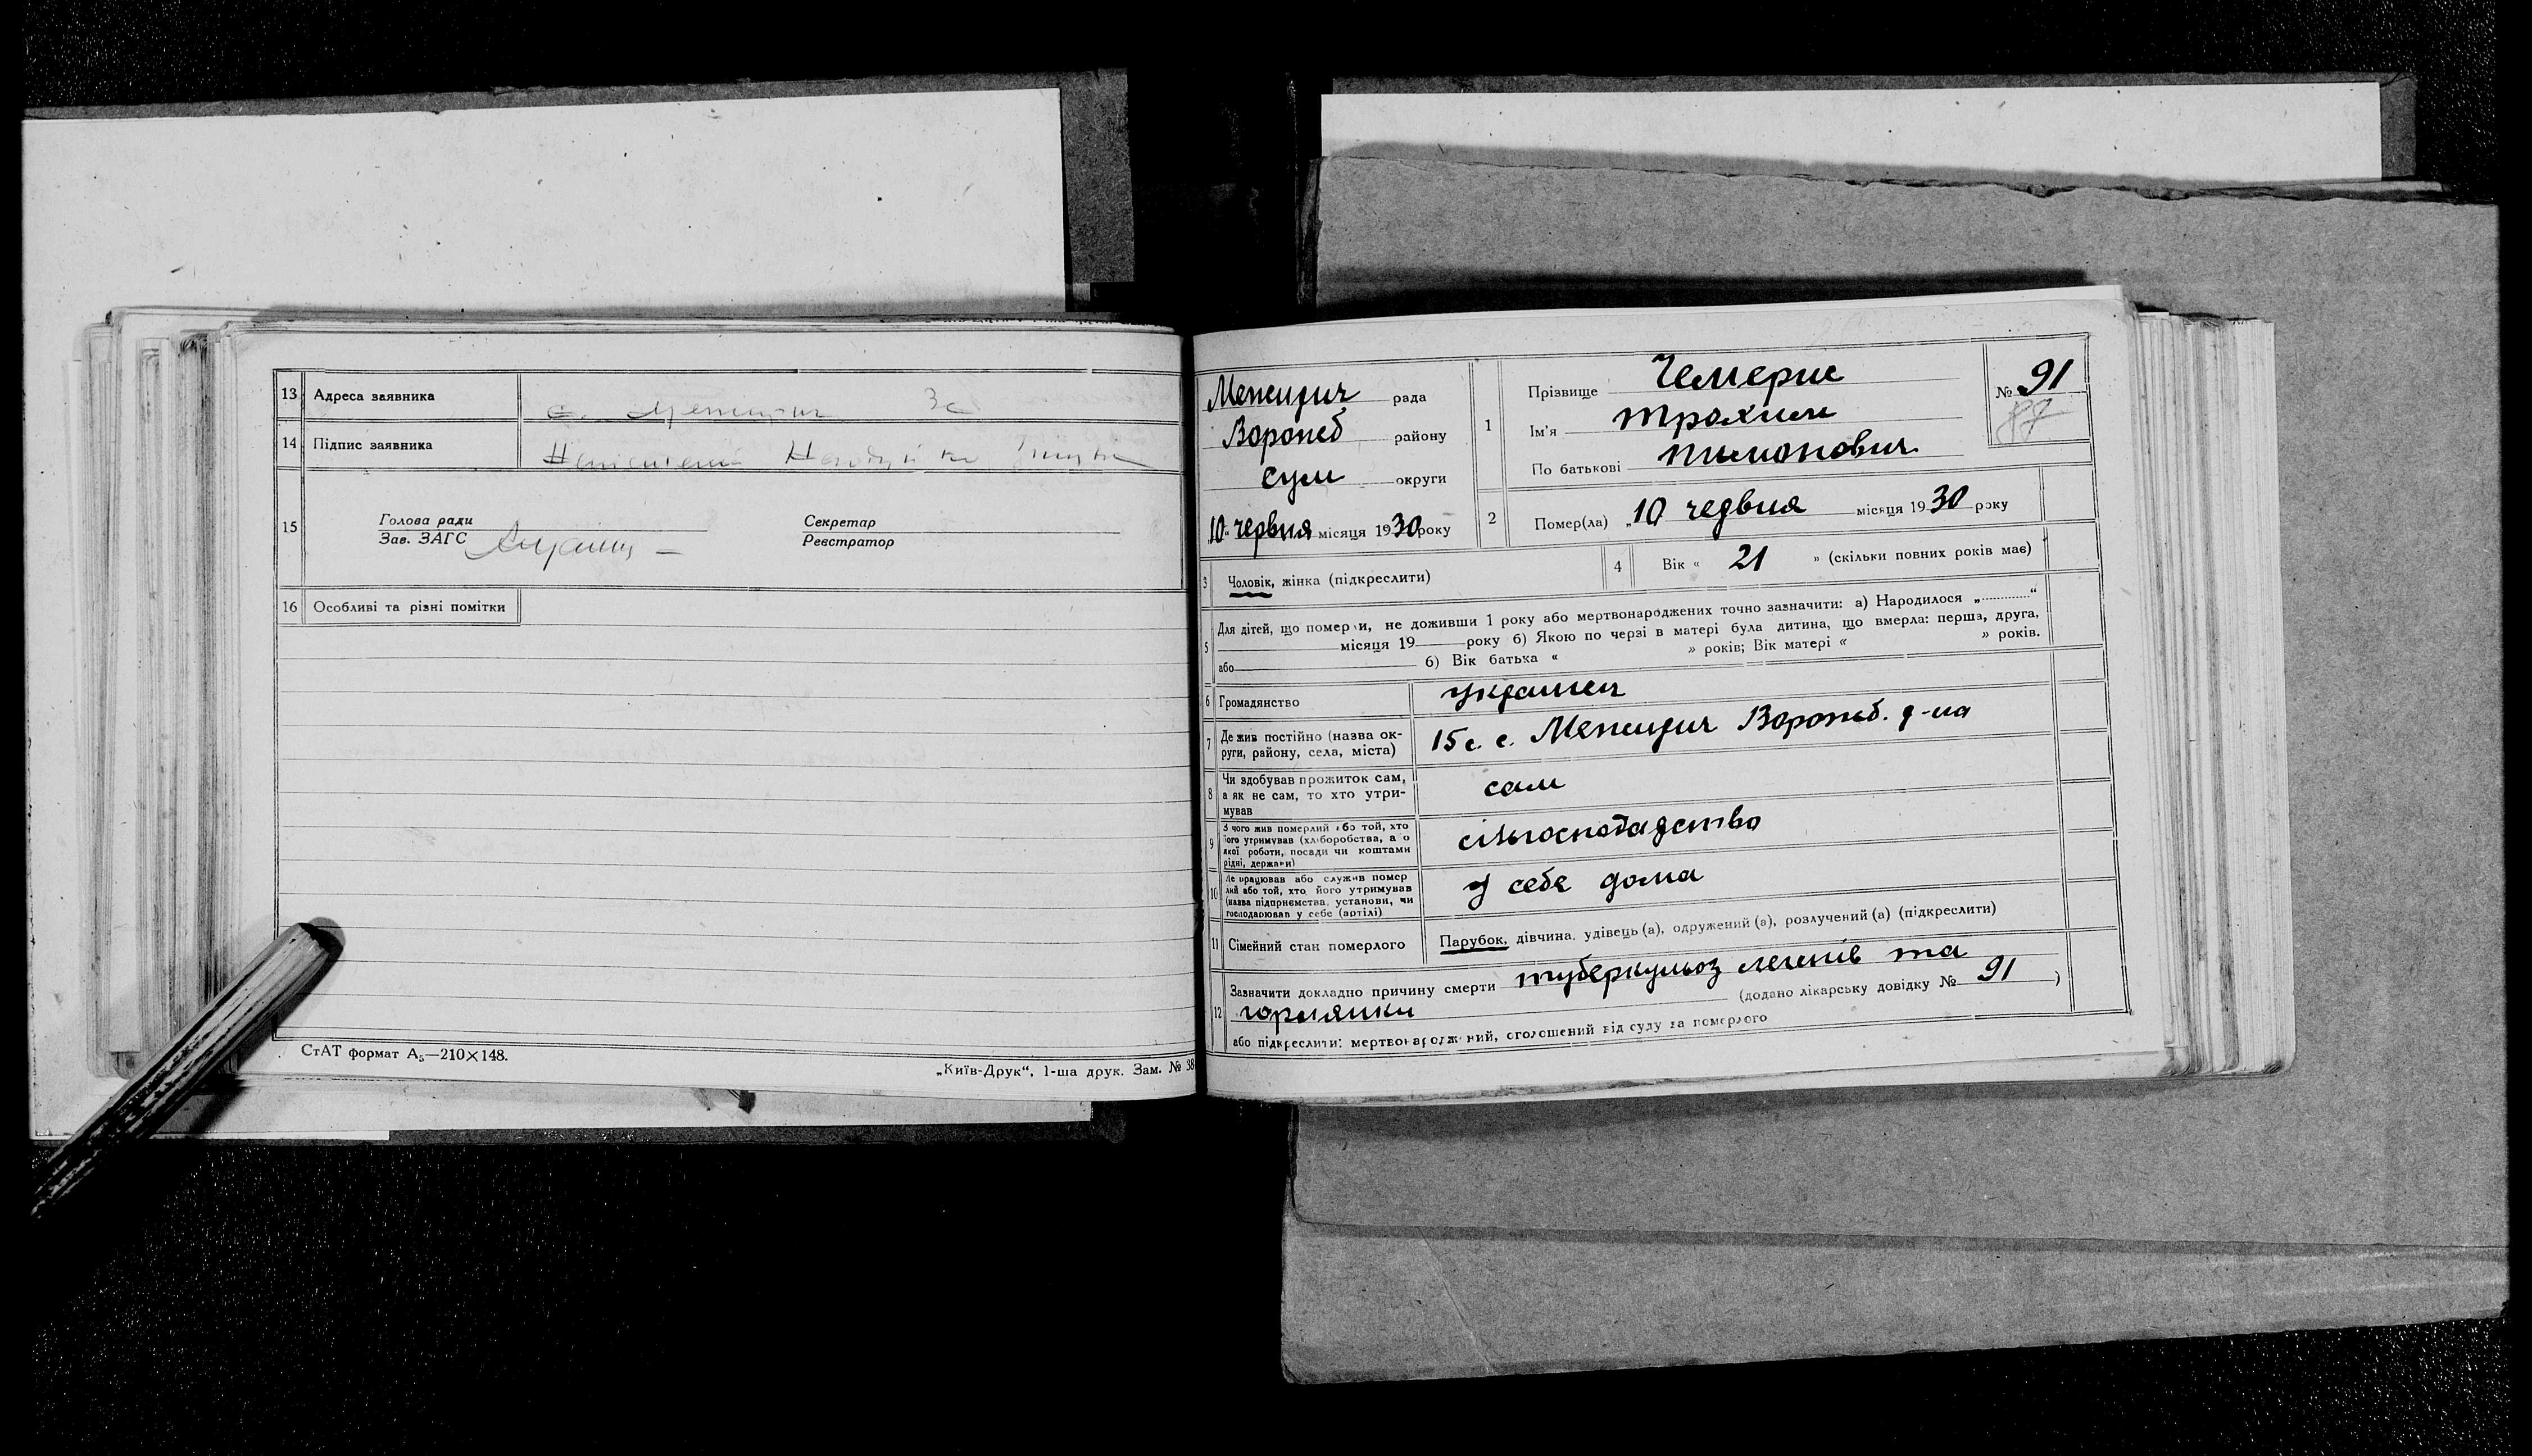 13 Адреса заявника с. Межирич 3с
14 Підпис заявника
15 Голова ради Секретар
Зав. ЗАГС Реєстратор
16 Особливі та різні помітки
СтАТ формат А₅—210×148.
„Київ-Друк“, 1-ша друк. Зам. № 38
Межирич рада
Ворожб району
Сум округи
„10“ червня місяця 1930 року
1 Прізвище Чемерис
Ім'я Трохим
По батькові Тимонович
№ 91
87
2 Помер(ла) „10 червня місяця 1930 року
3 Чоловік, жінка (підкреслити)
4 Вік « 21 » (скільки повних років має)
5 Для дітей, що померли, не доживши 1 року або мертвонароджених точно зазначити: а) Народилося „............“
місяця 19 року б) Якою по черзі в матері була дитина, що вмерла: перша, друга,
або б) Вік батька « » років; Вік матері « » років.
6 Громадянство украинец
7 Де жив постійно (назва ок-
руги, району, села, міста) 15 с. с. Межирич Ворожб. р-на
8 Чи здобував прожиток сам,
а як не сам, то хто утри-
мував сам
9 З чого жив померлий або той, хто
його утримував (хліборобства, а о
якої роботи, посади чи коштами
рідні, держави) сільгосподарство
10 Де працював або служив помер
лий або той, хто його утримував
(назва підприємства, установи, чи
господарював у себе (артілі) У себе дома
11 Сімейний стан померлого Парубок, дівчина, удівець (а), одружений (а), розлучений (а) (підкреслити)
12 Зазначити докладно причину смерти туберкульоз легенів та
горлянки (додано лікарську довідку № 91 )
або підкреслити: мертвонароджений, оголошений від суду за померлого